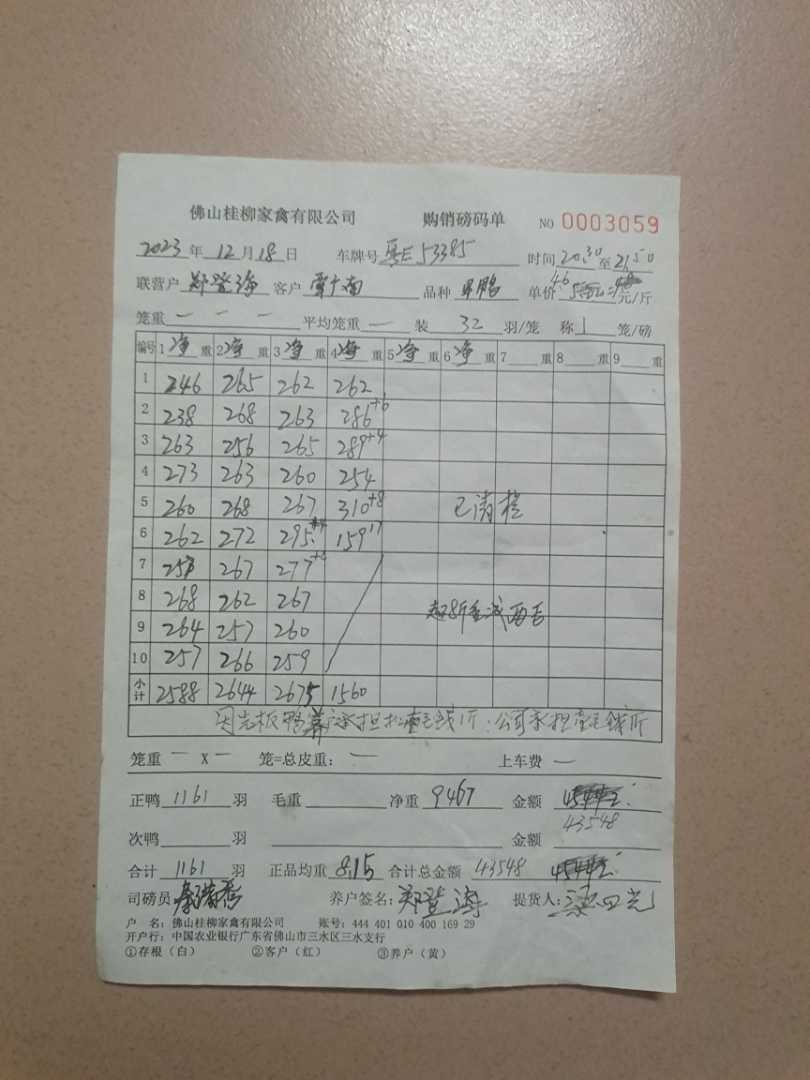 佛山桂柳家禽有限公司 购销磅码单 NO 0003059
2023年12月18日 车牌号 粤E53385 时间20:30至21:50
联营户 郑登海 客户 覃十南 品种 单价 4.6 元/斤
笼重 — — — 平均笼重 — 装 32 羽/笼 称 1 笼/磅
编号 1净重 2净重 3净重 4净重 5净重 6净重 7重 8重 9重
1 246 265 262 262
2 238 268 263 286+6
3 263 256 265 289+4
4 273 263 260 254
5 260 268 267 310+8 已清栏
6 262 272 295 159 17
7 257 267 277
8 268 262 267
9 264 257 260 减两毛
10 257 266 259
小计 2588 2644 2675 1560
承担 毛钱/斤:公司承担 毛钱/斤
笼重 — X — 笼=总皮重: — 上车费 —
正鸭 1161 羽 毛重 净重 9467 金额
43548
次鸭 羽 金额
合计 1161 羽 正品均重 8.15 合计总金额 43548
司磅员 养户签名: 郑登海 提货人:
户 名: 佛山桂柳家禽有限公司 账号: 444 401 010 400 169 29
开户行: 中国农业银行广东省佛山市三水区三水支行
①存根(白) ②客户(红) ③养户(黄)